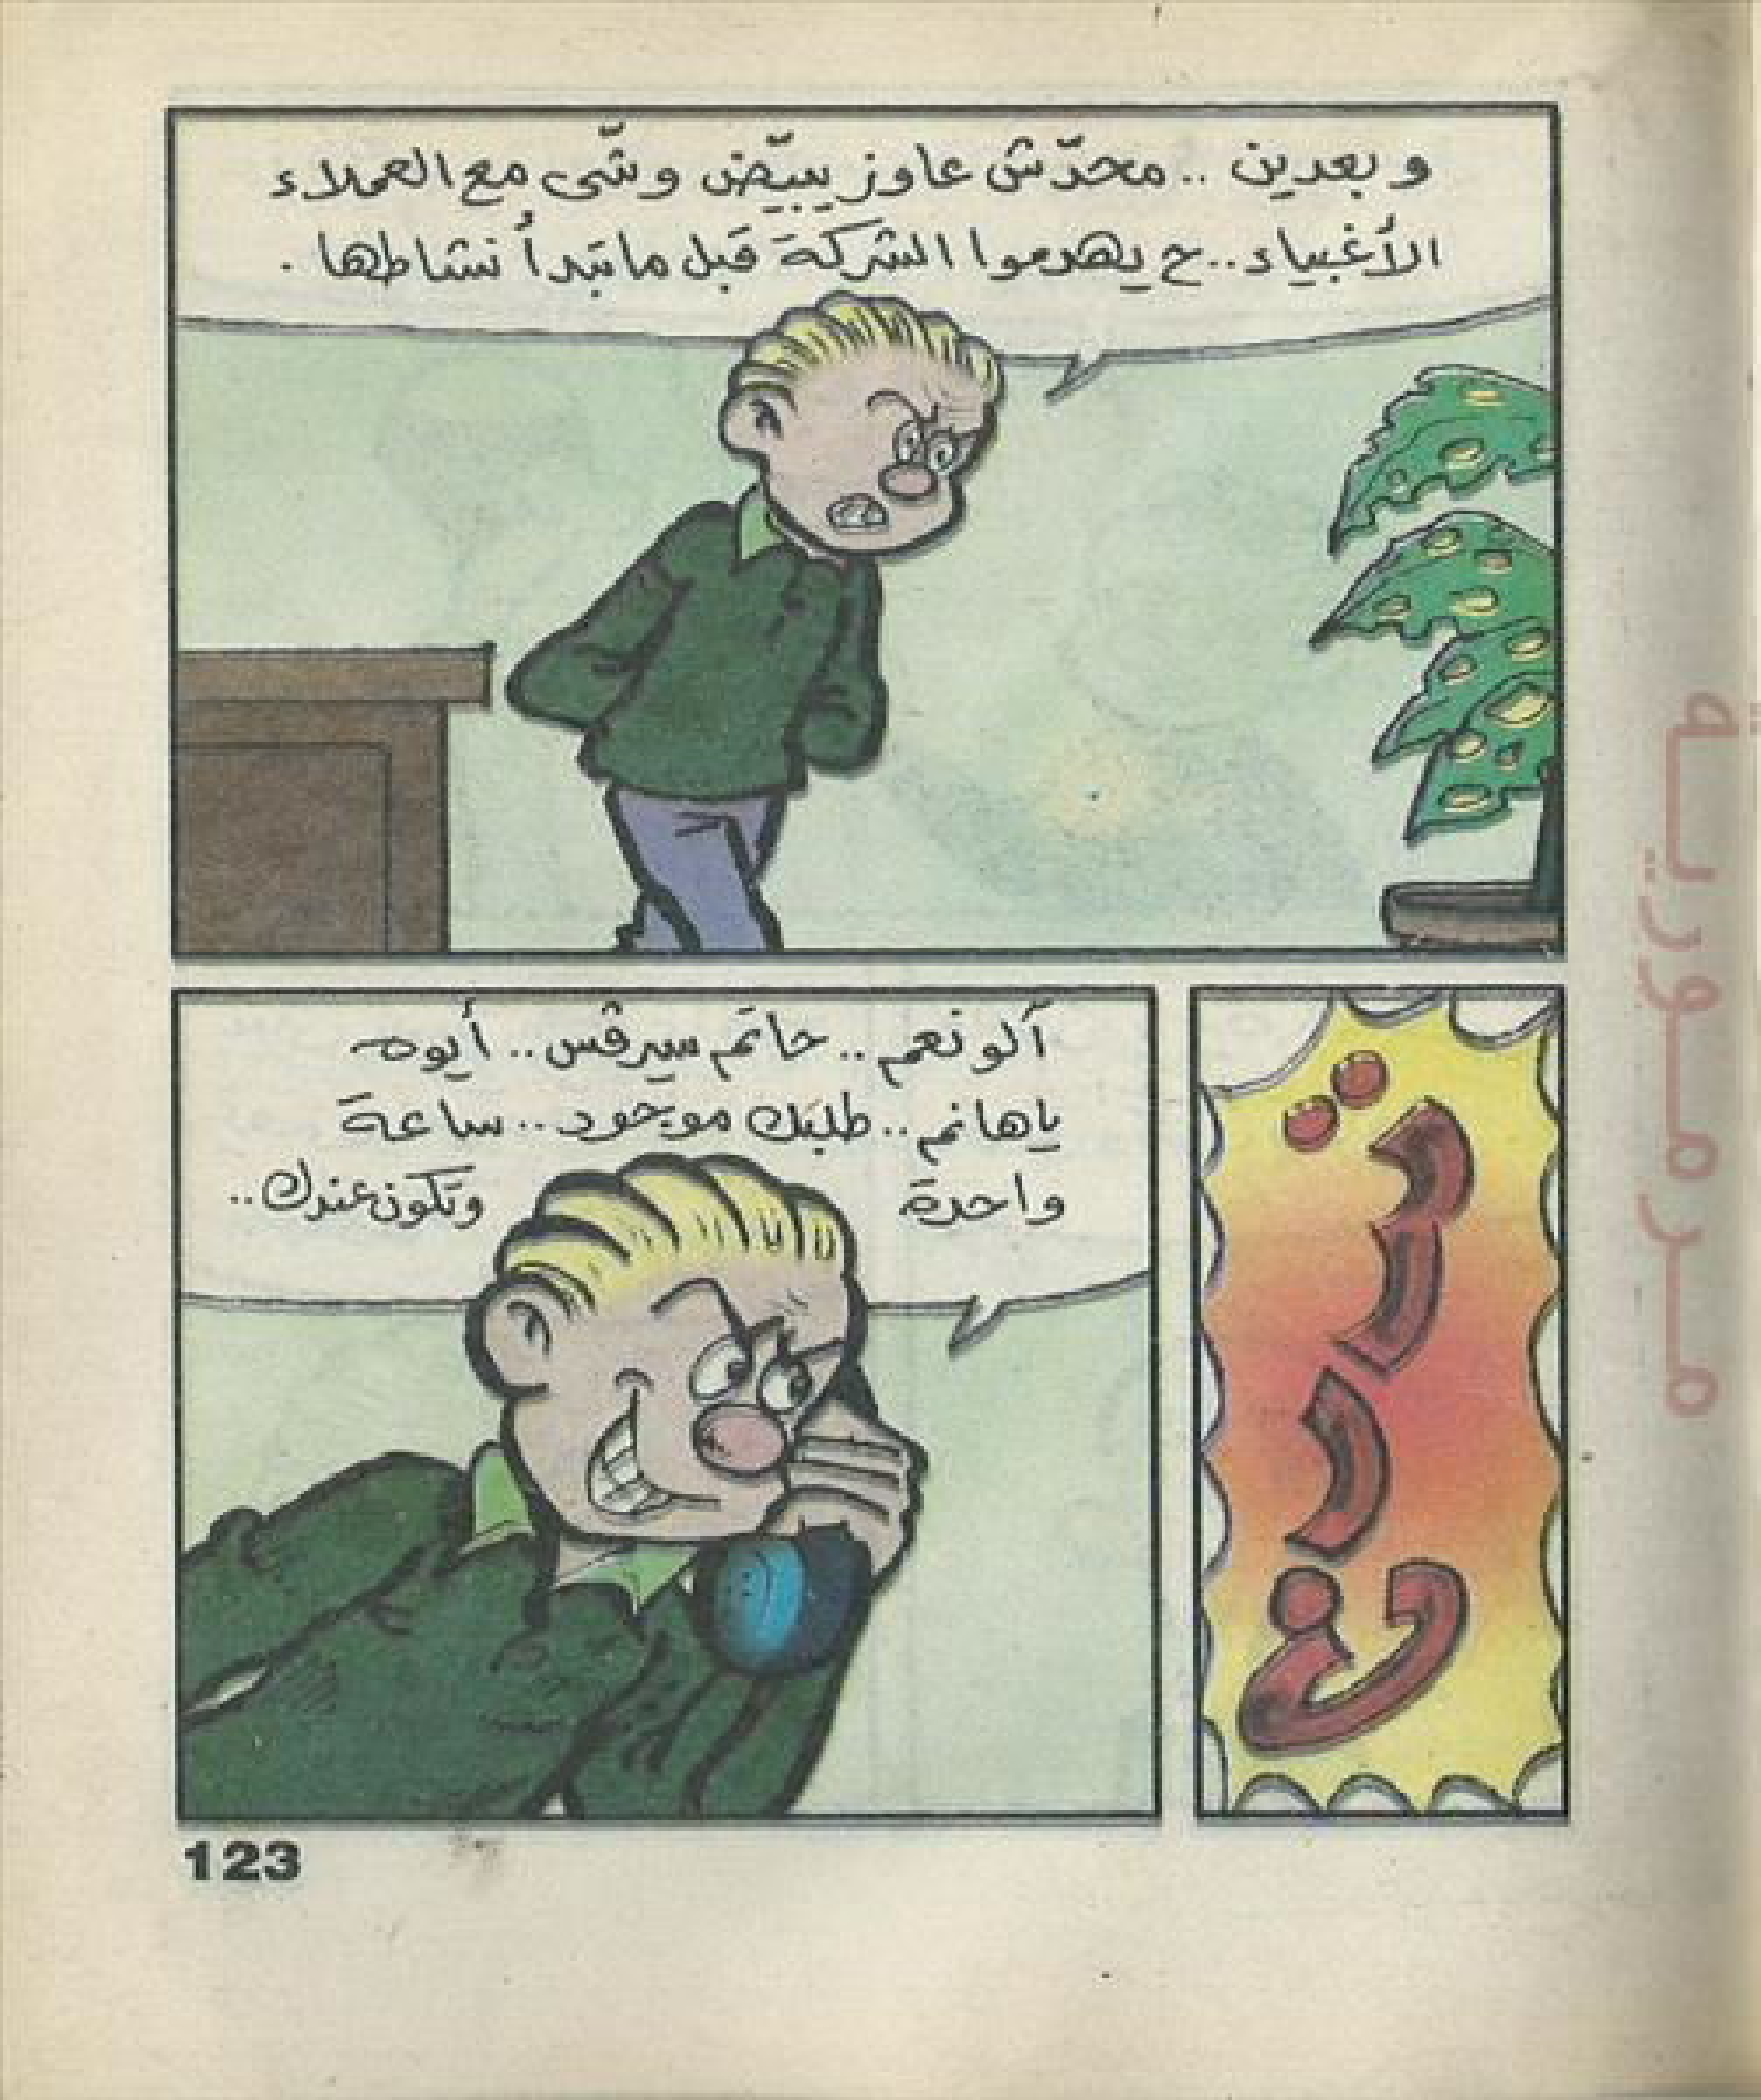 وبعدين .. محدّش عاوز يبيّض وشّى مع العملاء
الأغبياء .. ح يهدموا الشركة قبل ما تبدأ نشاطها .
تررررن
آلو نعم .. حاتم سيرڤس .. أيوه
ياهانم .. طلبك موجود .. ساعة
واحدة وتكون عندك ..
123
مرمورية